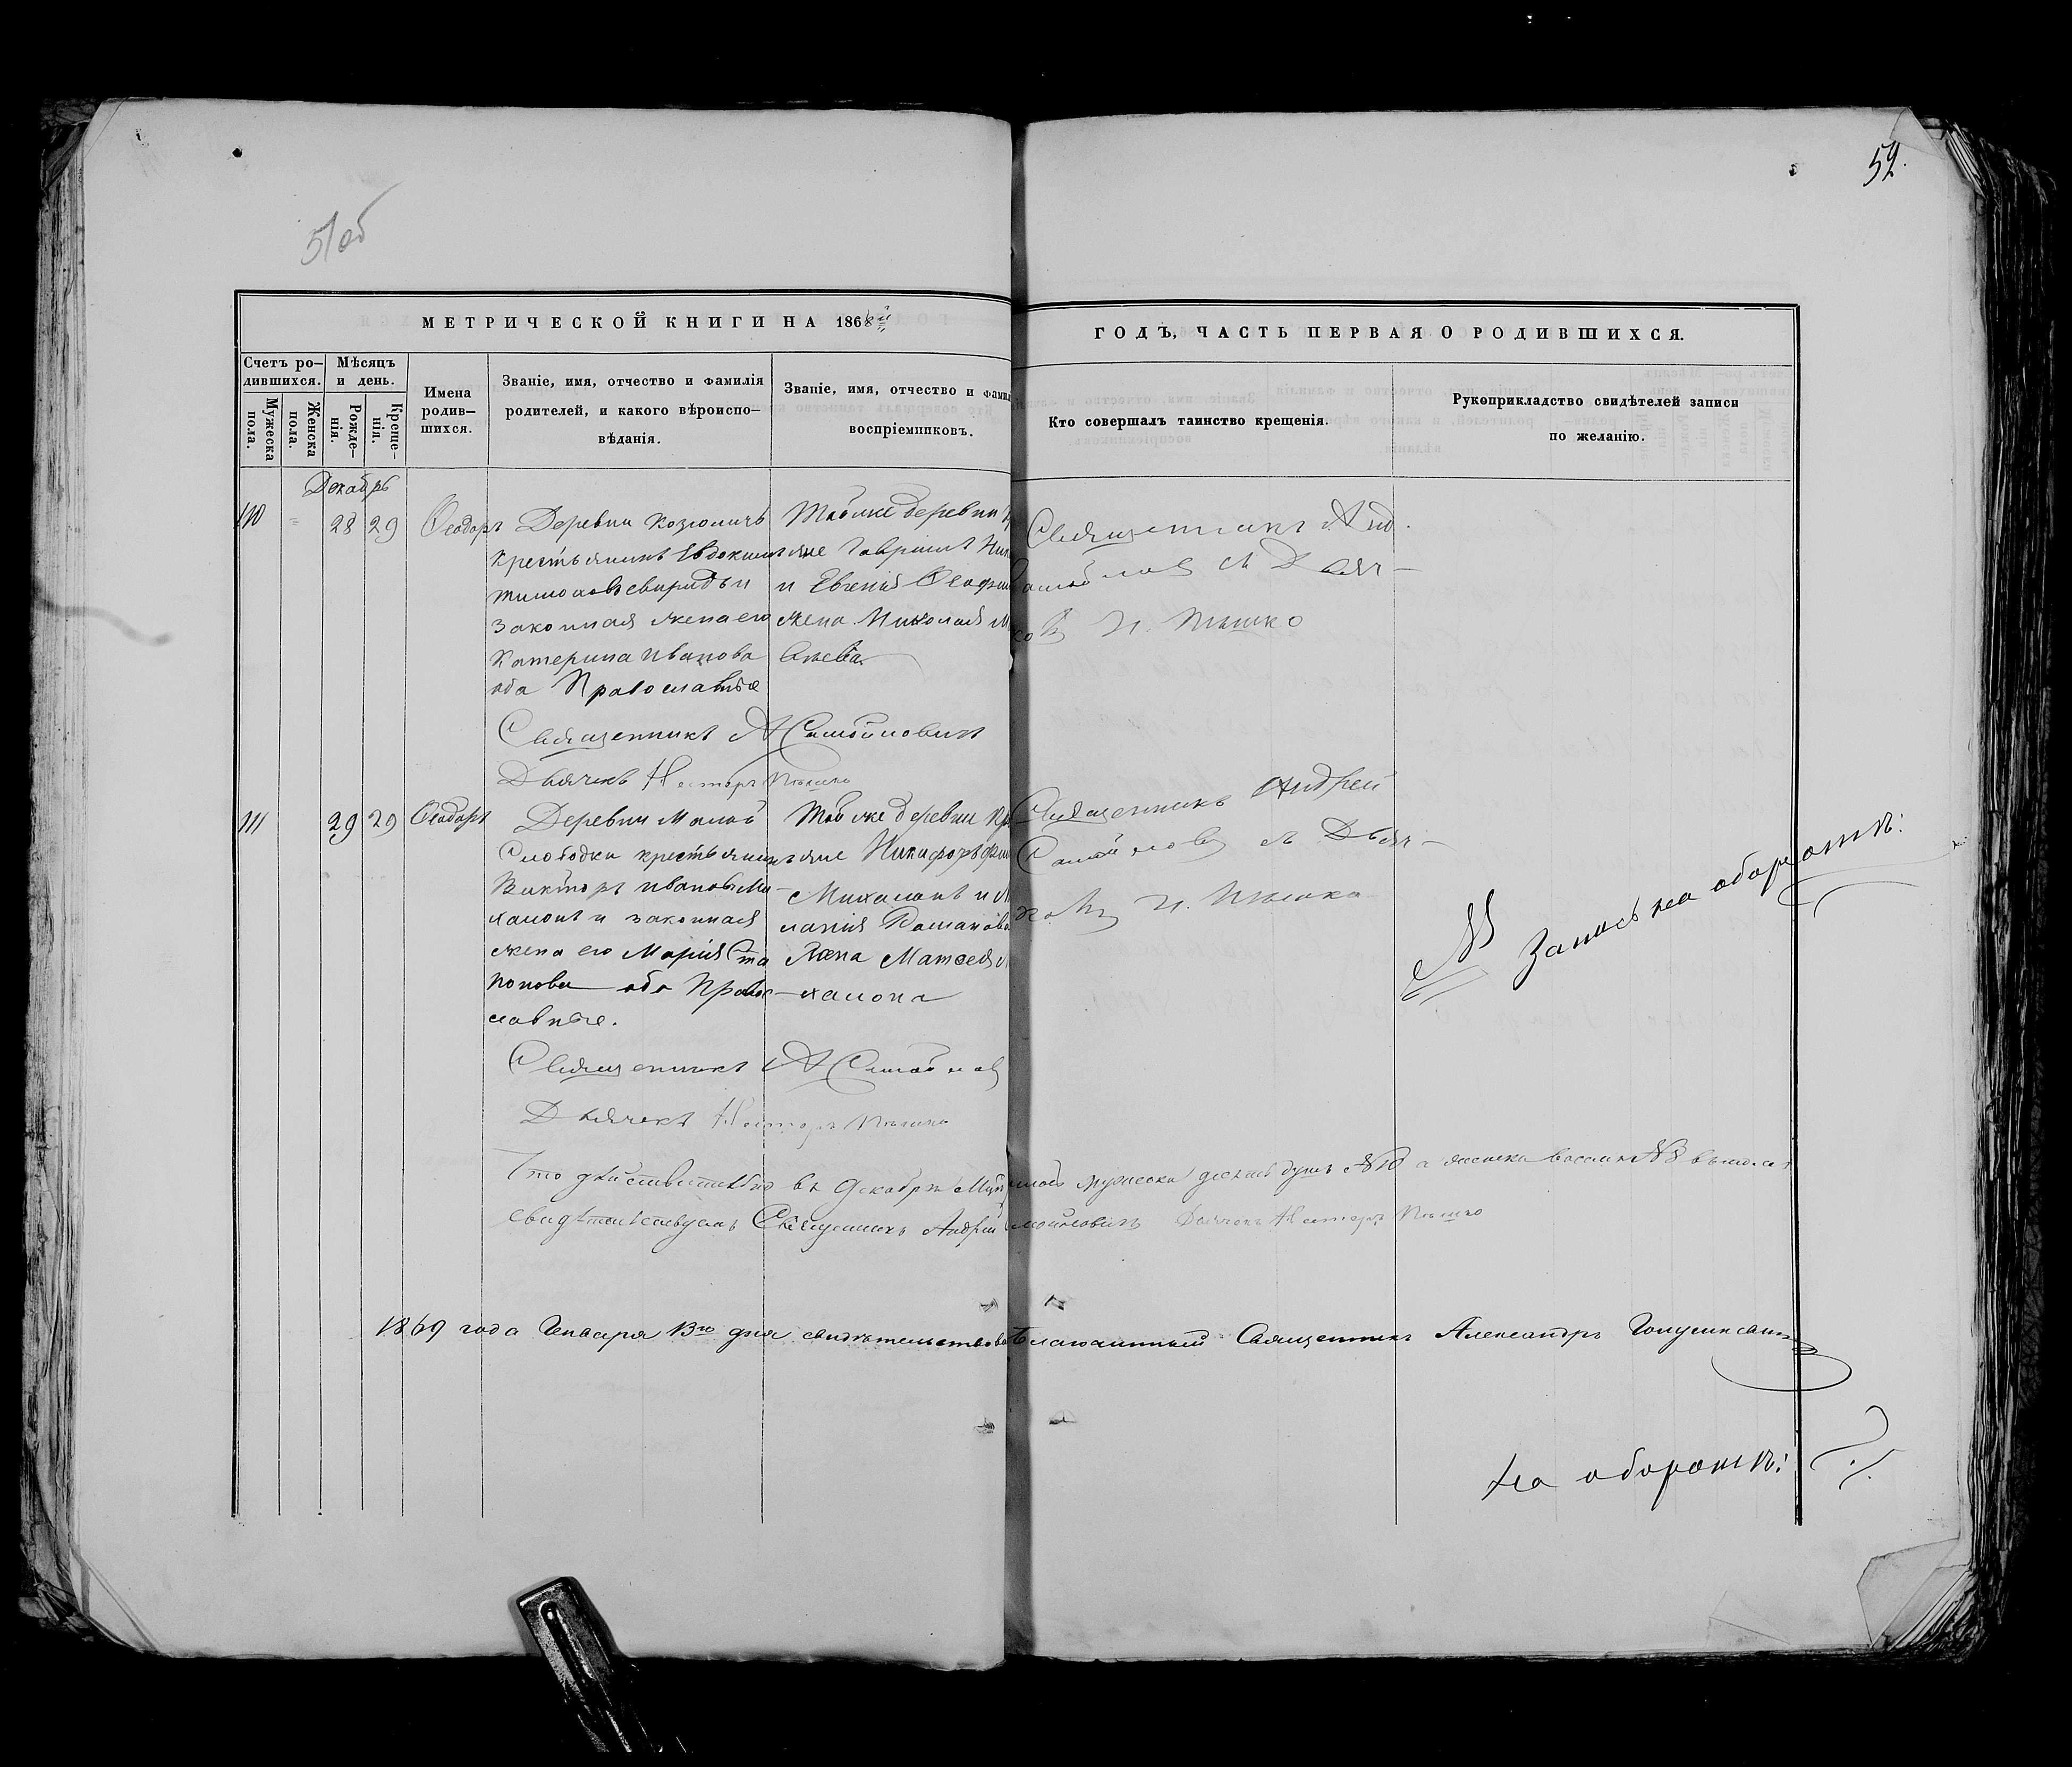 51об
52.
МЕТРИЧЕСКОЙ КНИГИ НА 1868й
ГОДЪ, ЧАСТЬ ПЕРВАЯ О РОДИВШИХСЯ.
Счетъ ро-
дившихся.
Мужеска
пола.
Женска
пола.
Мѣсяцъ
и день.
Рожде-
нія.
Креще-
нія.
Имена
родив-
шихся.
Званіе, имя, отчество и фамилія
родителей, и какого вѣроиспо-
вѣданія.
Званіе, имя, отчество и фамил
воспріемниковъ.
Кто совершалъ таинство крещенія.
Рукоприкладство свидѣтелей записи
по желанію.
Декабрь
110
28
29
Ѳеодоръ
Деревни
Крестьянинъ Евдокимъ
и
законная жена его
Катерина Иванова
оба Православные
Священникъ А Самойловичъ
Дьячекъ Несторъ Пышко
Той же деревни
яне Гавріилъ
и Евгенія
жена Николая
Священникъ Анд.
Самойлов съ Дьяч-
ком Н. Пышко
111
29
29
Ѳеодоръ
Деревни Малой
Слободки крестьянинъ
Викторъ Ивановъ Ми-
халопъ и законная
жена его Марія Ста
нова оба Правос-
лавные.
Священникъ А Самойлов
Дьячекъ Несторъ Пышко
Той же деревни
яне Никифоръ
Михалопъ и
ланія Романова
жена Матвея
халопа
Священникъ Андрей
Самойлов съ Дьяч-
ком Н. Пышко
NB
Запись на оборотѣ:
Что дѣйствительно въ Декабрѣ мужеска десять душъ №10 а женска восемь №8
свидѣтельствуемъ Священникъ Андрей Самойловичъ Дьячекъ Несторъ Пышко
1869 года Генваря 13го дня свидѣтельствова Благочинный Священникъ Александръ
На оборотѣ: